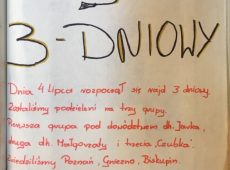 3-DNIOWY
Dnia 4 Lipca rozpoczął się rajd 3 dniowy.
Zostaliśmy podzieleni na trzy grupy.
Pierwsza grupa pod dowództwem dh. Janka,
druga dh. Małgorzaty i trzecia "Czubka".
Zwiedziliśmy Poznań, Gniezno, Biskupin.